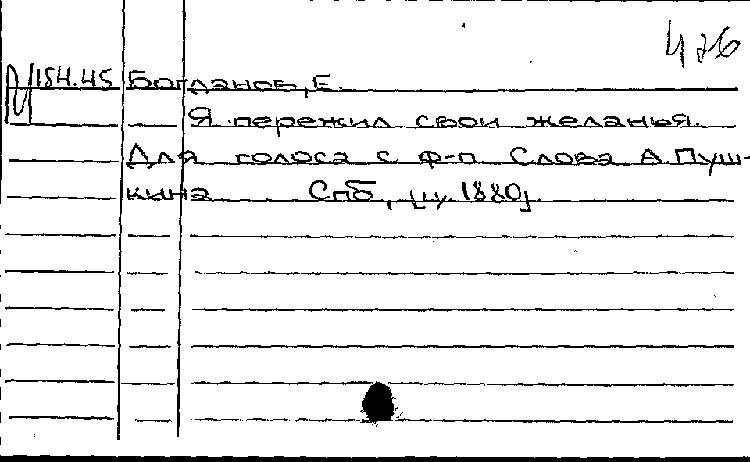 426
154.45 Богданов, Е.
Я пережил свои желанья.
Для голоса с ф-п Слова А. Пуш-
кина Спб, [ц. 1880].